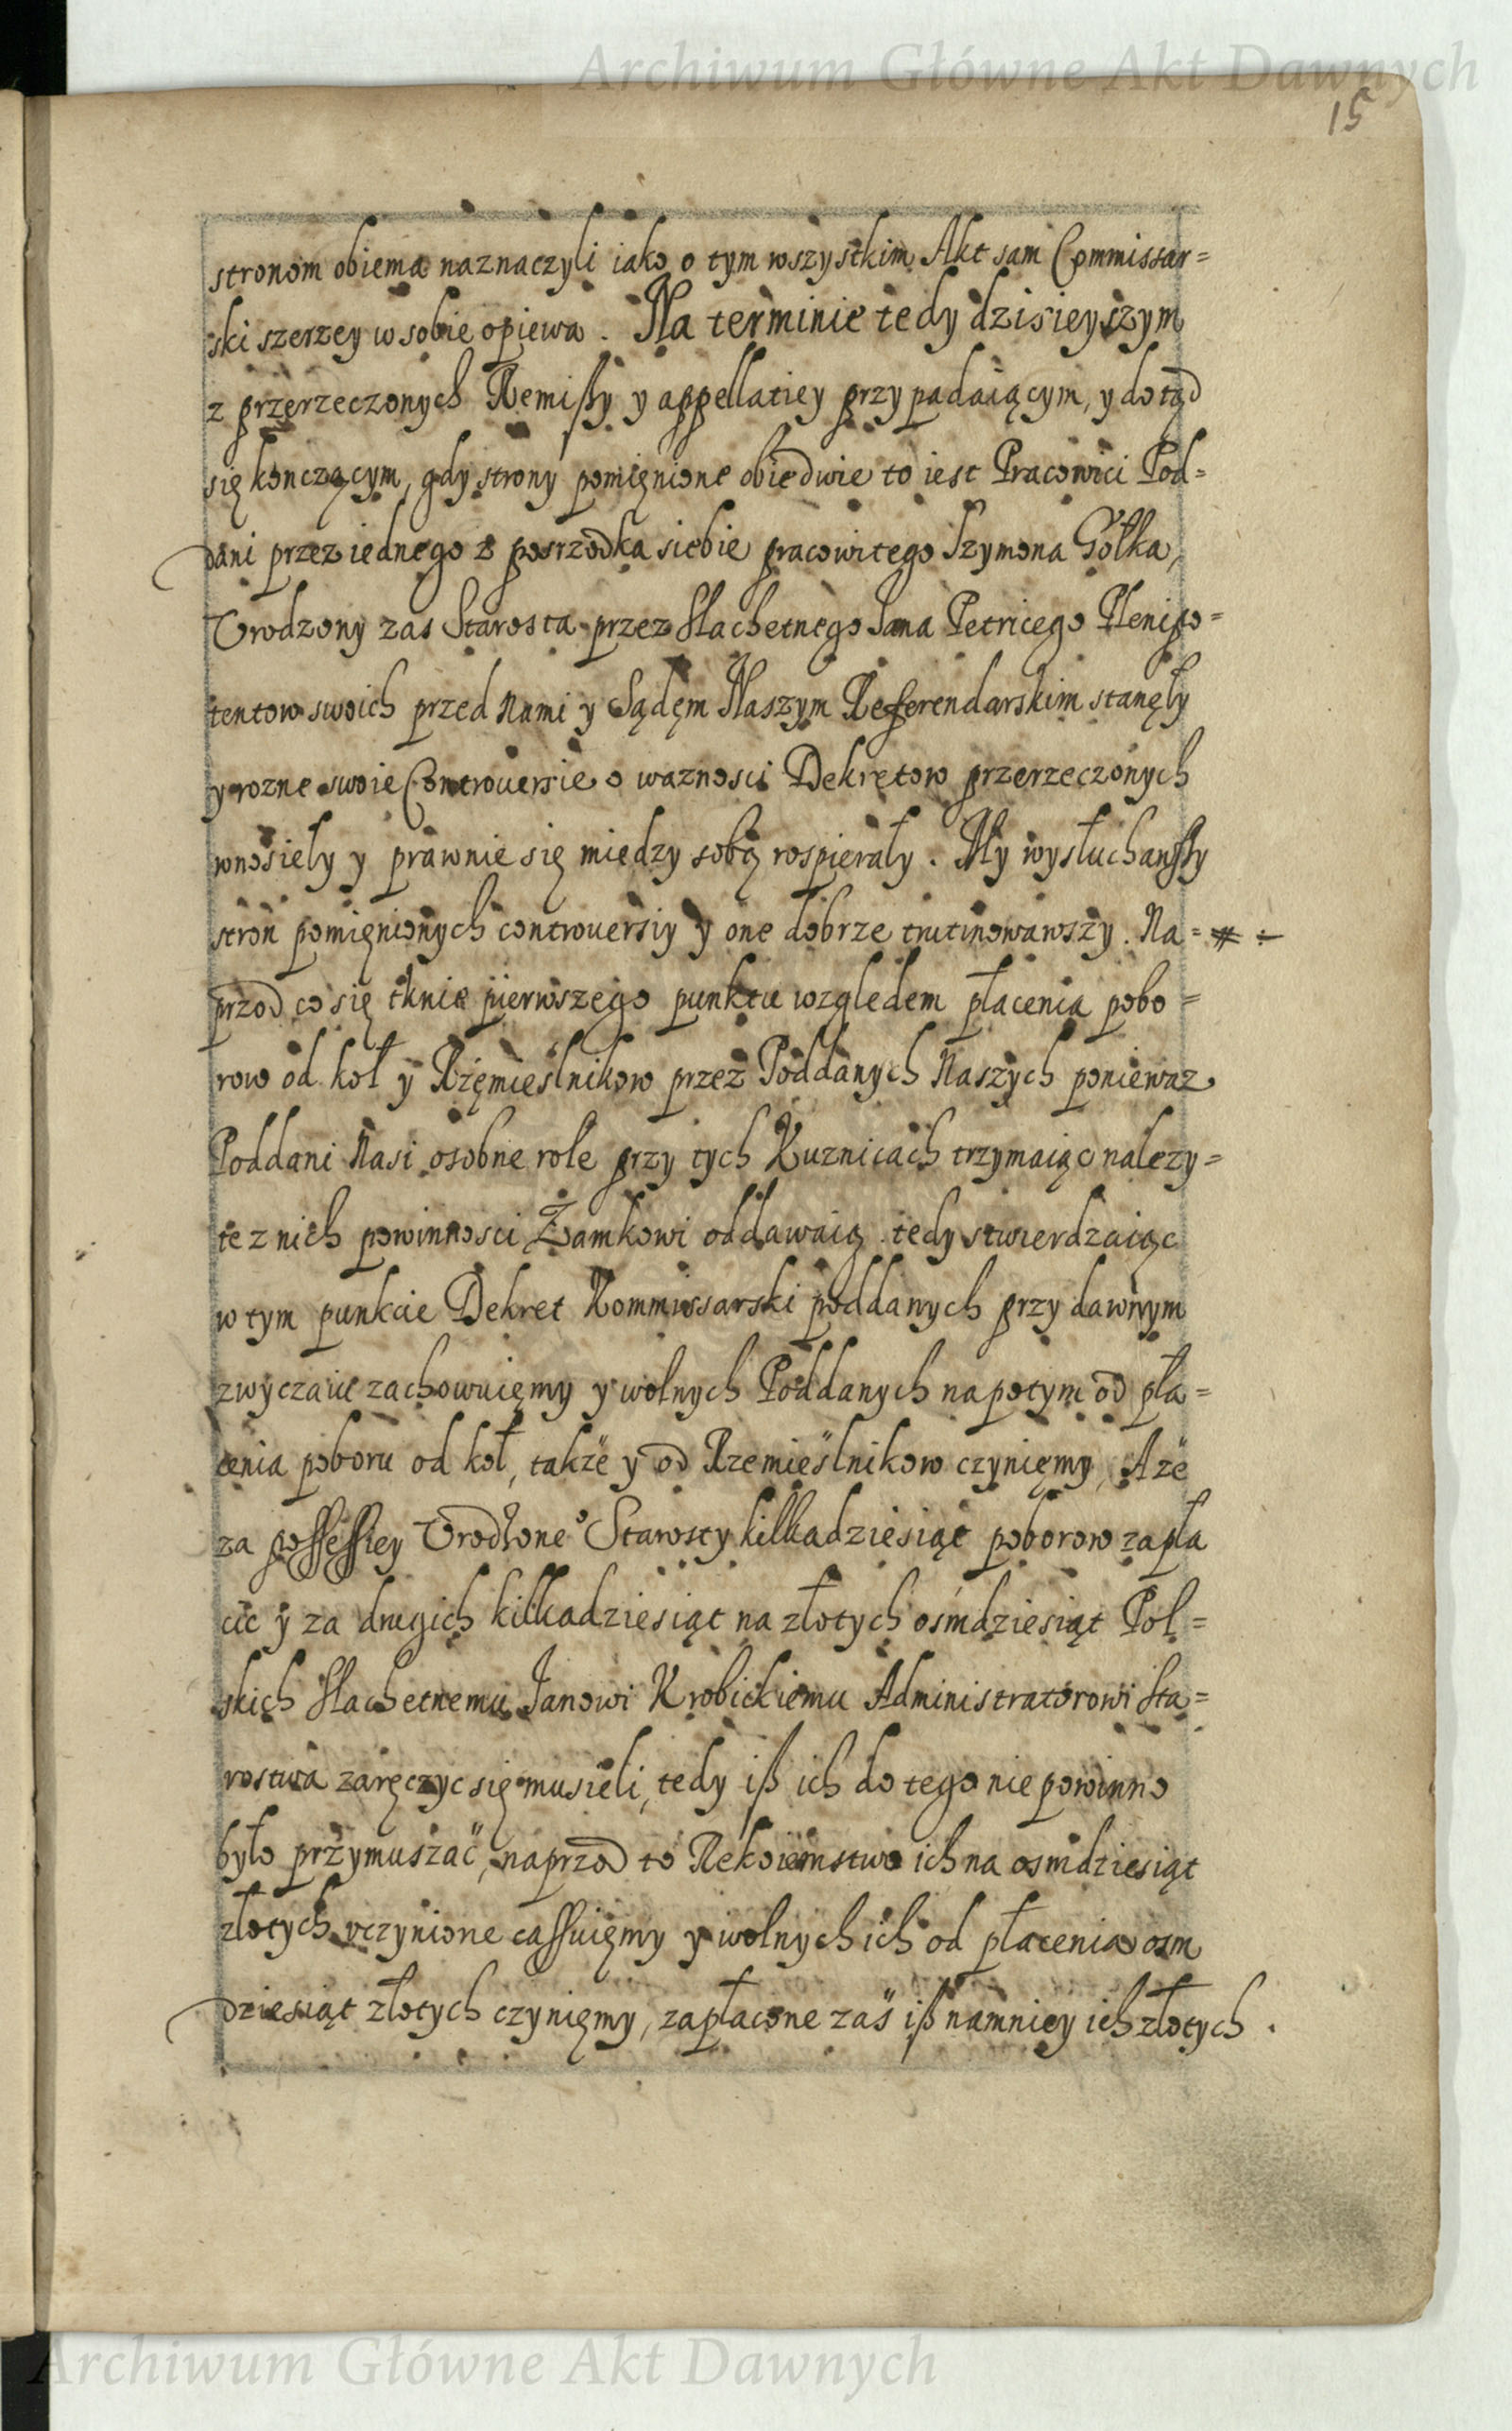 Archiwum Główne Akt Dawnych
15
stronom obiema naznaczyli iako o tym wszystkim Akt sam Commissar=
ski szerzey w sobie opiewa. Na terminie tedy dzisieyszym
z przerzeczonych Remißy y appellatiey przypadaiącym, y dotąd
się kończącym, gdy strony pomięnione obiedwie to iest Pracowici Pod=
dani przez iednego z posrzodka siebie pracowitego Szymona Gołka,
Vrodzony zas Starosta przez Slachetnego Jana Petricego Plenipo=
tentow swoich przed Nami y Sądęm Naszym Referendarskim stanęły
y rozne swoie Controuersie o waznosci Dekretow przerzeczonych
wnosiely y prawnie się miedzy sobą rospierały. My wysłuchawſſy
stron pomięnionych controuersiy y one dobrze trutinowawszy. Na= # ÷
przod co się tknie pierwszego punktu względem płacenia pobo=
row od koł y Rzęmieslnikow przez Poddanych Naszych poniewaz
Poddani Nasi osobne role przy tych Kuznicach trzymaiąc nalezy=
te z nich powinnosci Zamkowi oddawaią tedy stwierdzaiąc
w tym punkcie Dekret Kommissarski poddanych przy dawnym
zwyczaiu zachowuięmy y wolnych Poddanych napotym od pła=
cenia poboru od koł, także y od Rzemieslnikow czynięmy, A że
za poſſeſſiey Vrodzone⁰ Starosty kilkadziesiąt poborow zapła
cic y za drugich kilkadziesiąt na złotych ośmdziesiąt Pol=
skich Slachetnemu Janowi Krobickiemu Administratorowi Sta=
rostwa zaręczyc się musieli, tedy iß ich do tego nie powinno
było przymuszać, naprzod to Rekoiemstwo ich na osmdziesiąt
złotych vczynione caſſuięmy y wolnych ich od płacenia osm
dziesiąt złotych czynięmy, zapłacone zaś iß namniey ich złotych.
Archiwum Główne Akt Dawnych